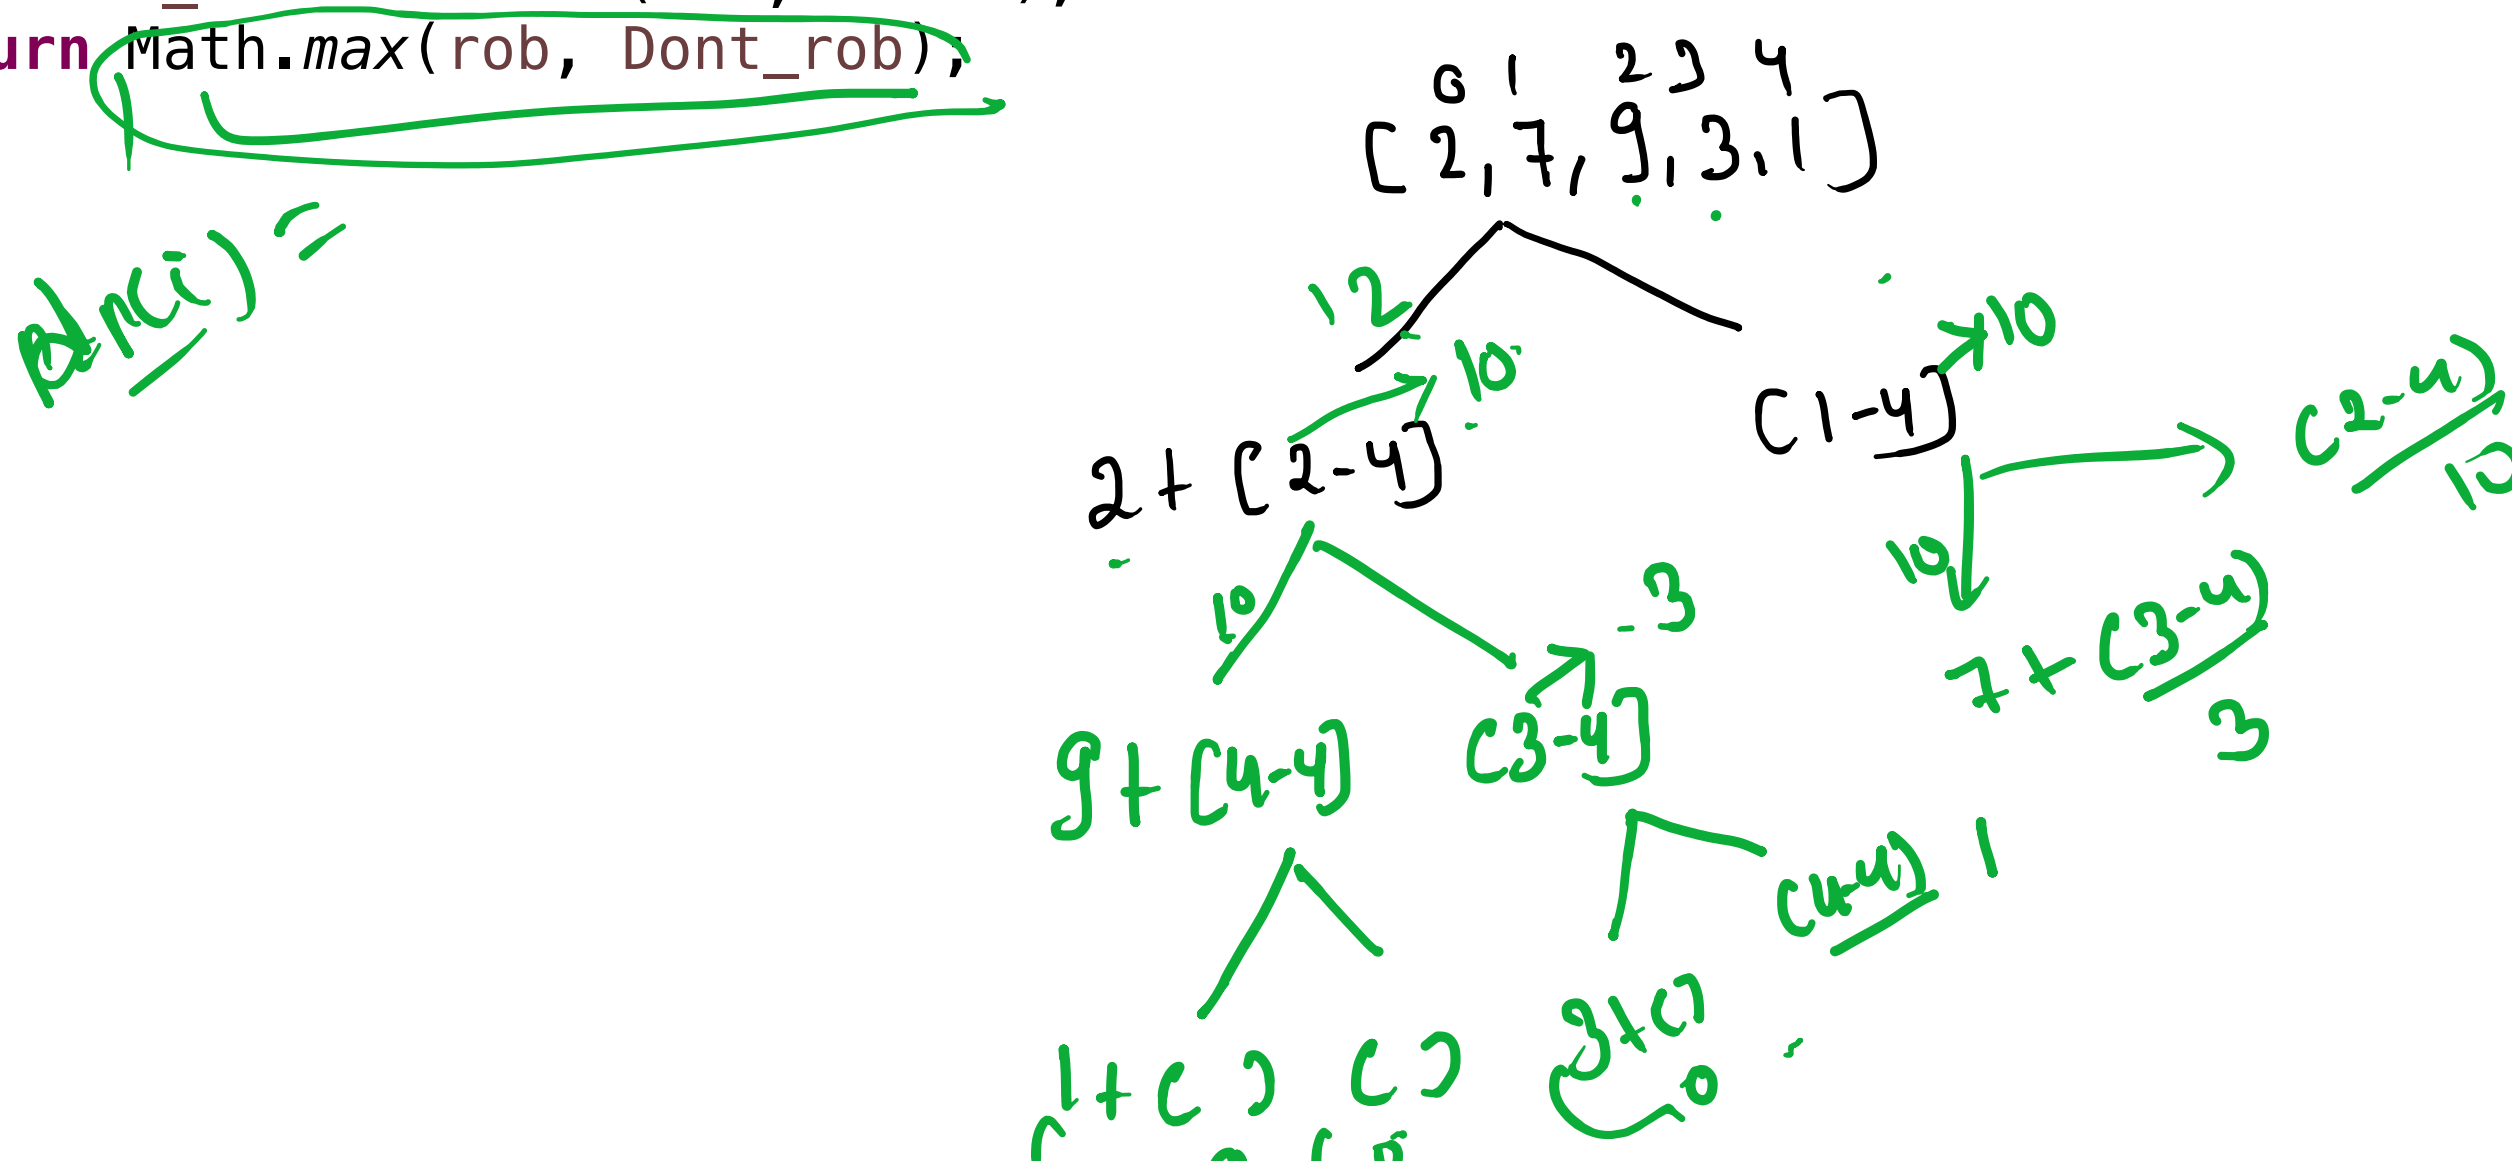 urn Math.max(rob, Dont_rob);
0 1 2 3 4
[2, 7, 9, 3, 1]
12
10
10
2 + [2-4]
[1-4]
(2-4)
10
10
10
3
7 + (3-4)
3
9 + [4-4]
(3-4]
(4-4) 1
3+()
0
1 + ( ) ( )